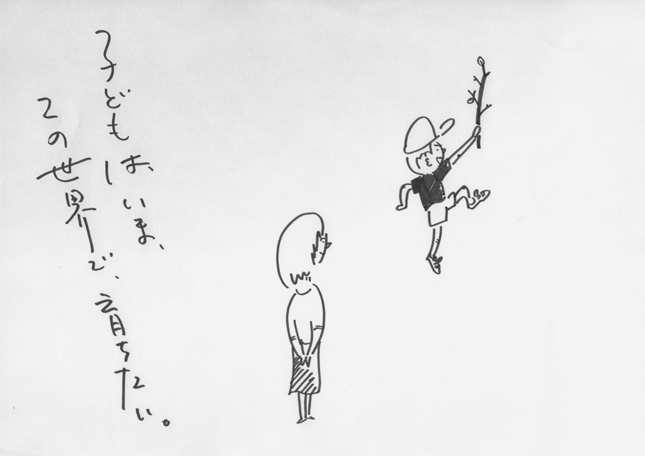 子どもは、いま、
この世界で、育ちたい。